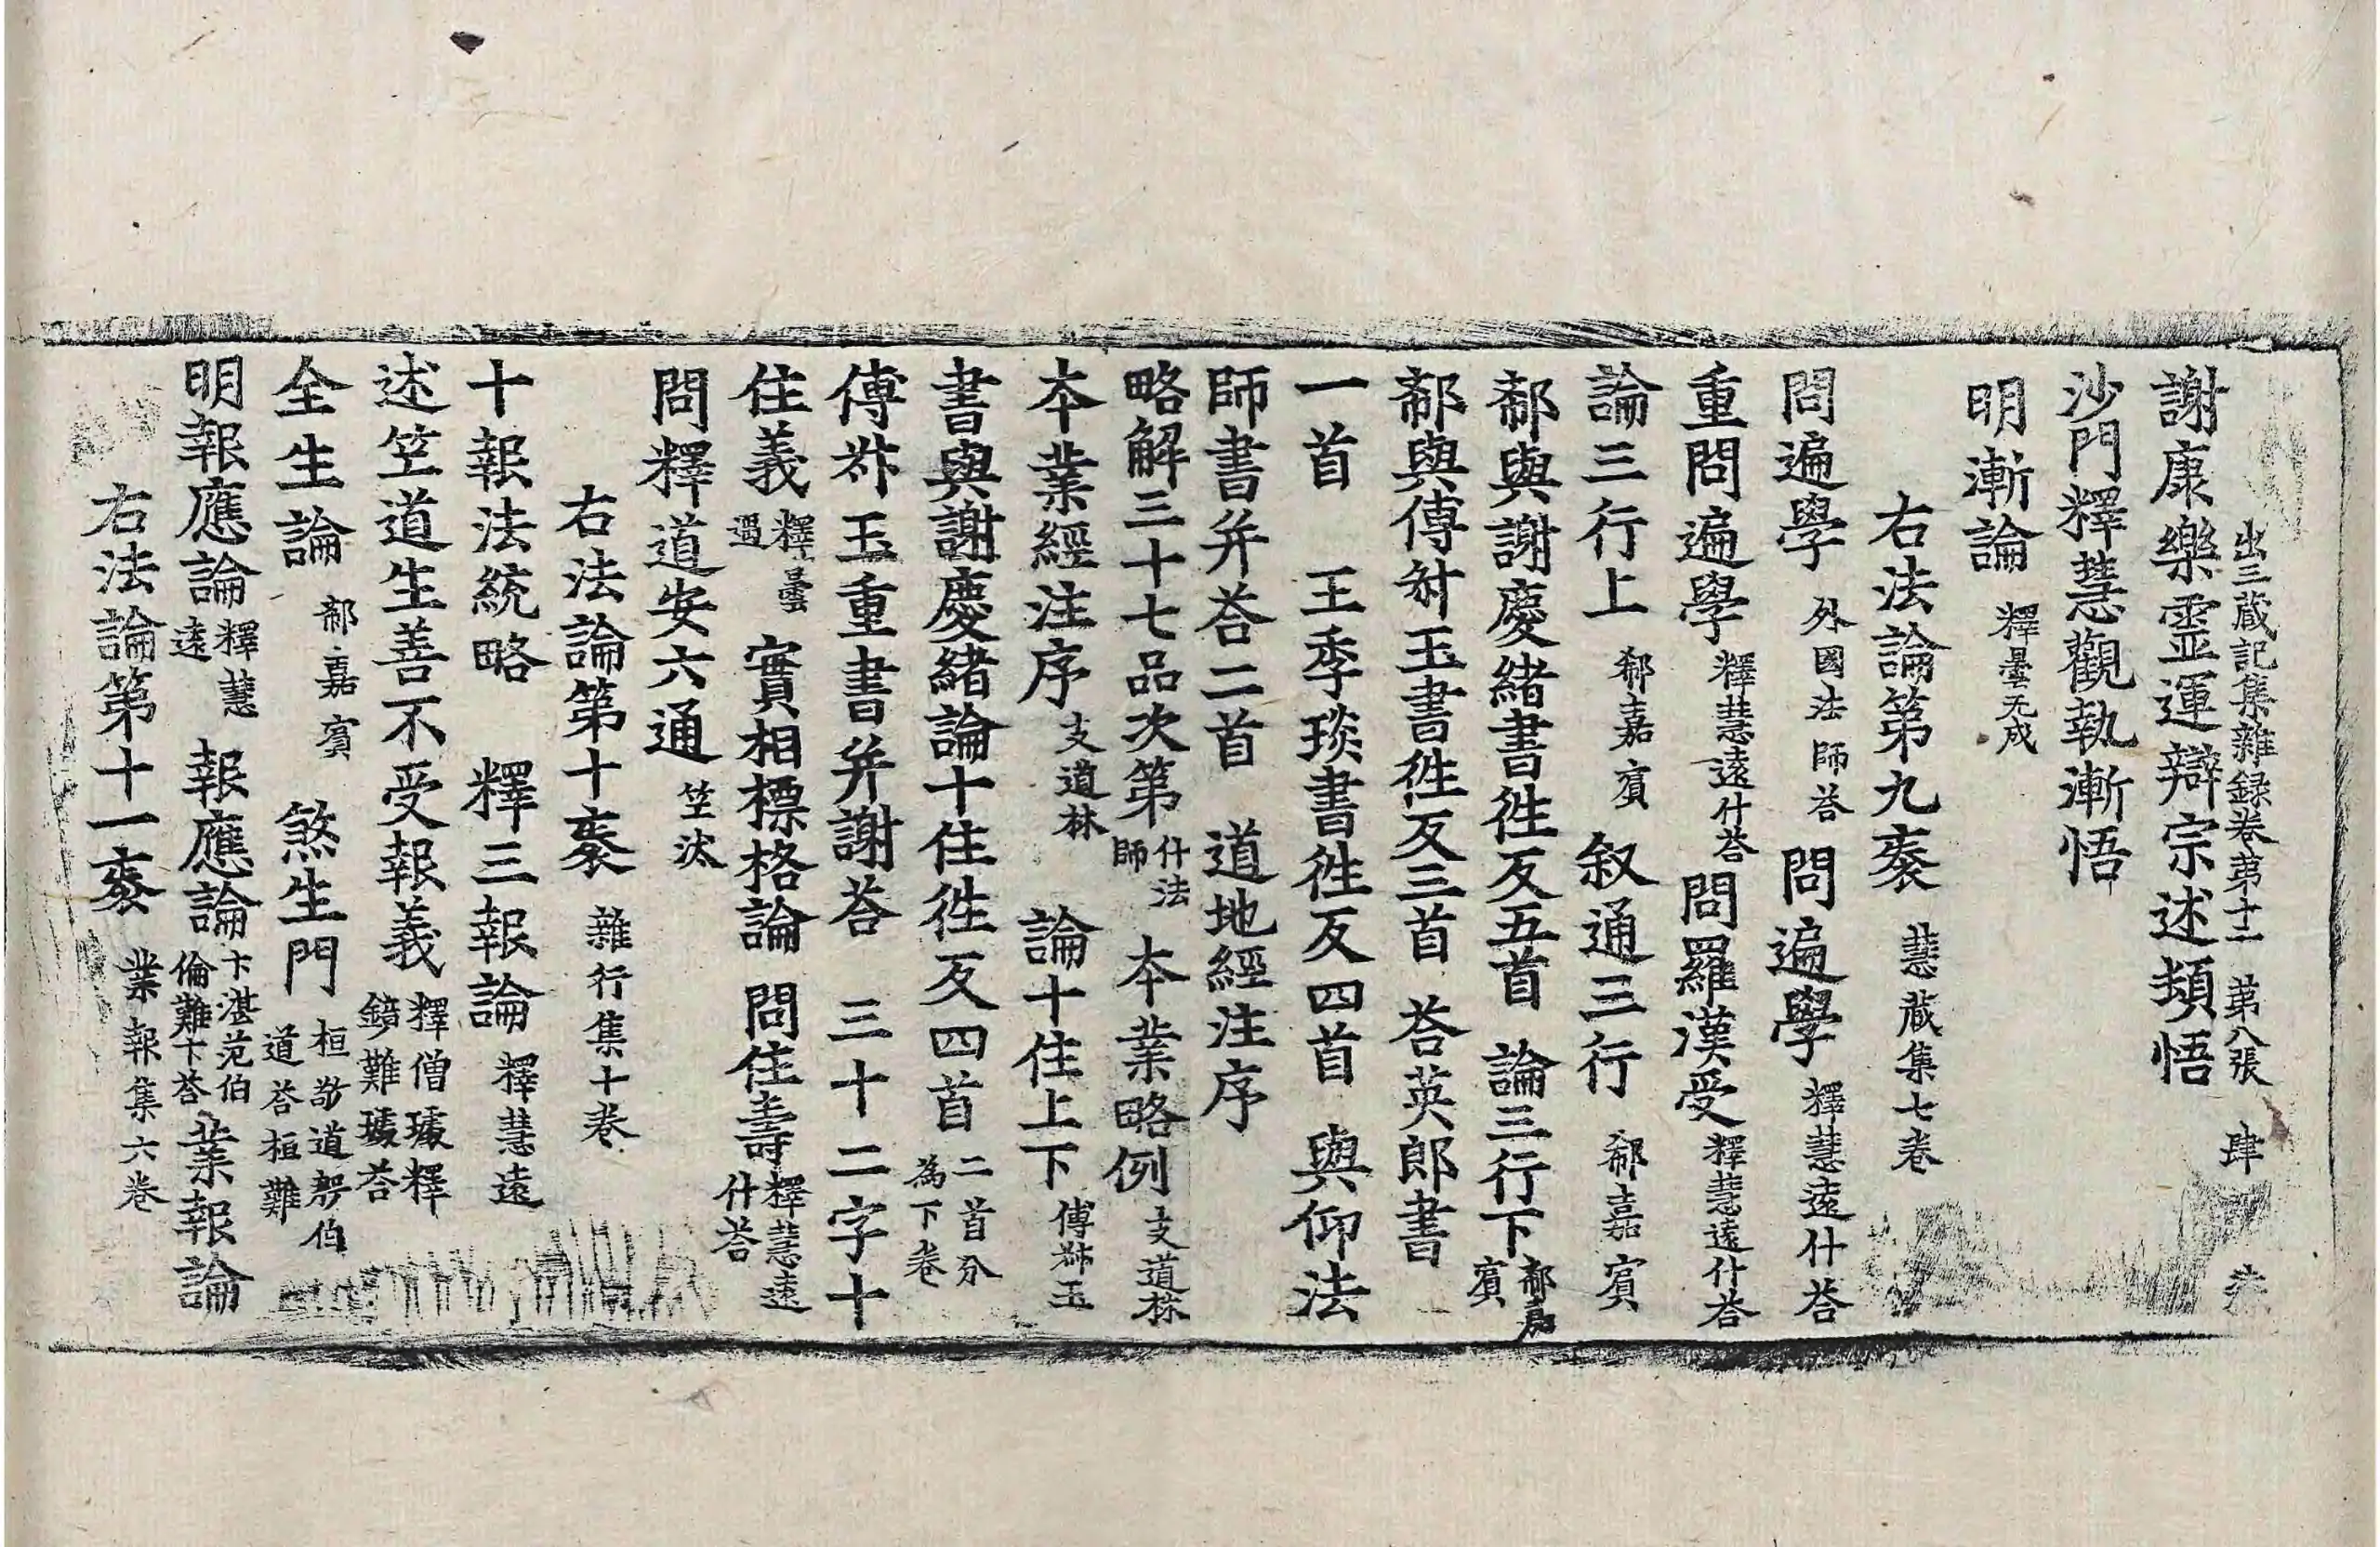 出三藏記集雜録卷第十二 第八張 肆
謝康樂靈運辯宗述頓悟
沙門釋慧觀執漸悟
明漸論 釋曇无成
右法論第九袠 慧藏集七卷
問遍學 外國法師荅 問遍學 釋慧遠什荅
重問遍學 釋慧遠什荅 問羅漢受 釋慧遠什荅
論三行上 郗嘉賓 叙通三行 郗嘉賓
郗與謝慶緒書徃反五首 論三行下 郗嘉賓
郗與傅叔玉書徃反三首 荅英郎書
一首 王季琰書徃反四首 與仰法
師書并荅二首 道地經注序
略解三十七品次第 什法師 本業略例 支道林
本業經注序 支道林 論十住上下 傅叔玉
書與謝慶緒論十住徃反四首 二首分為下卷
傅叔玉重書并謝荅 三十二字十
住義 釋曇遇 實相標格論 問住壽 釋慧遠什荅
問釋道安六通 竺汰
右法論第十袠 雜行集十卷
十報法統略 釋三報論 釋慧遠
述竺道生善不受報義 釋僧璩釋鏡難璩荅
全生論 郗嘉賓 煞生門 桓敬道郄伯道荅桓難
明報應論 釋慧遠 報應論 卞湛范伯倫難卞荅 業報論
右法論第十一袠 業報集六卷